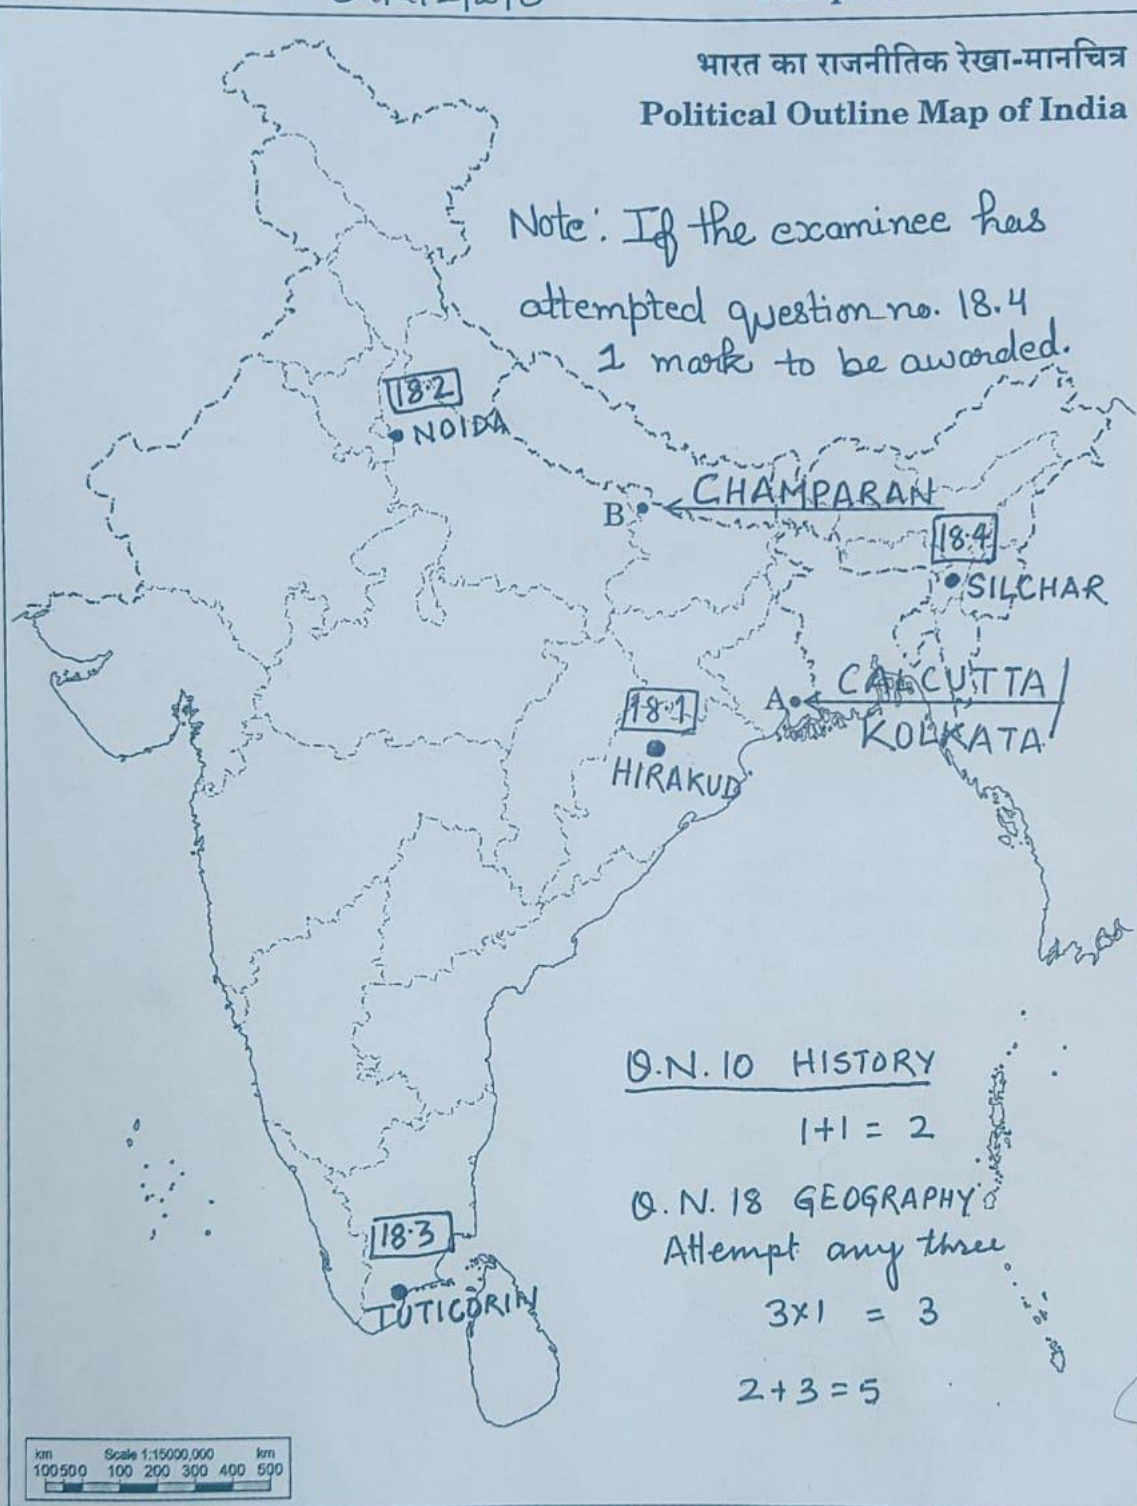 भारत का राजनीतिक रेखा-मानचित्र
Political Outline Map of India
Note: If the examinee has
attempted question no. 18.4
1 mark to be awarded.
18.2
NOIDA
CHAMPARAN
B
18.4
SILCHAR
CALCUTTA/
A
KOLKATA
18.1
HIRAKUD
Q.N. 10 HISTORY
1+1 = 2
Q.N. 18 GEOGRAPHY
Attempt any three
18.3
TUTICORIN
3×1 = 3
2+3=5
km Scale 1:15000,000 km
100500 100 200 300 400 500